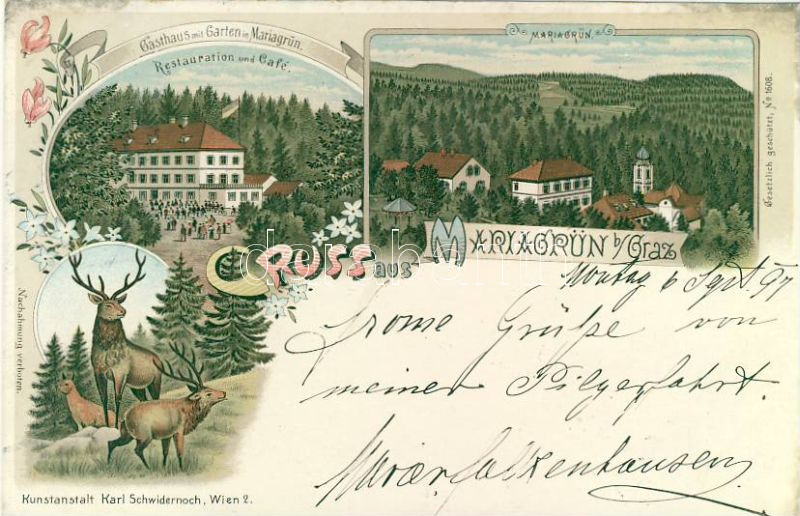 Gasthaus mit Garten in Mariagrün.
Restauration und Café.
MARIAGRÜN.
Gesetzlich geschützt, No 1608.
GRUSS aus MARIAGRÜN b/Graz
Montag 6 Sept 97
Frome Grüße von
meiner Pilgerfahrt.
Falkenhausen
Nachahmung verboten.
Kunstanstalt Karl Schwidernoch, Wien 2.